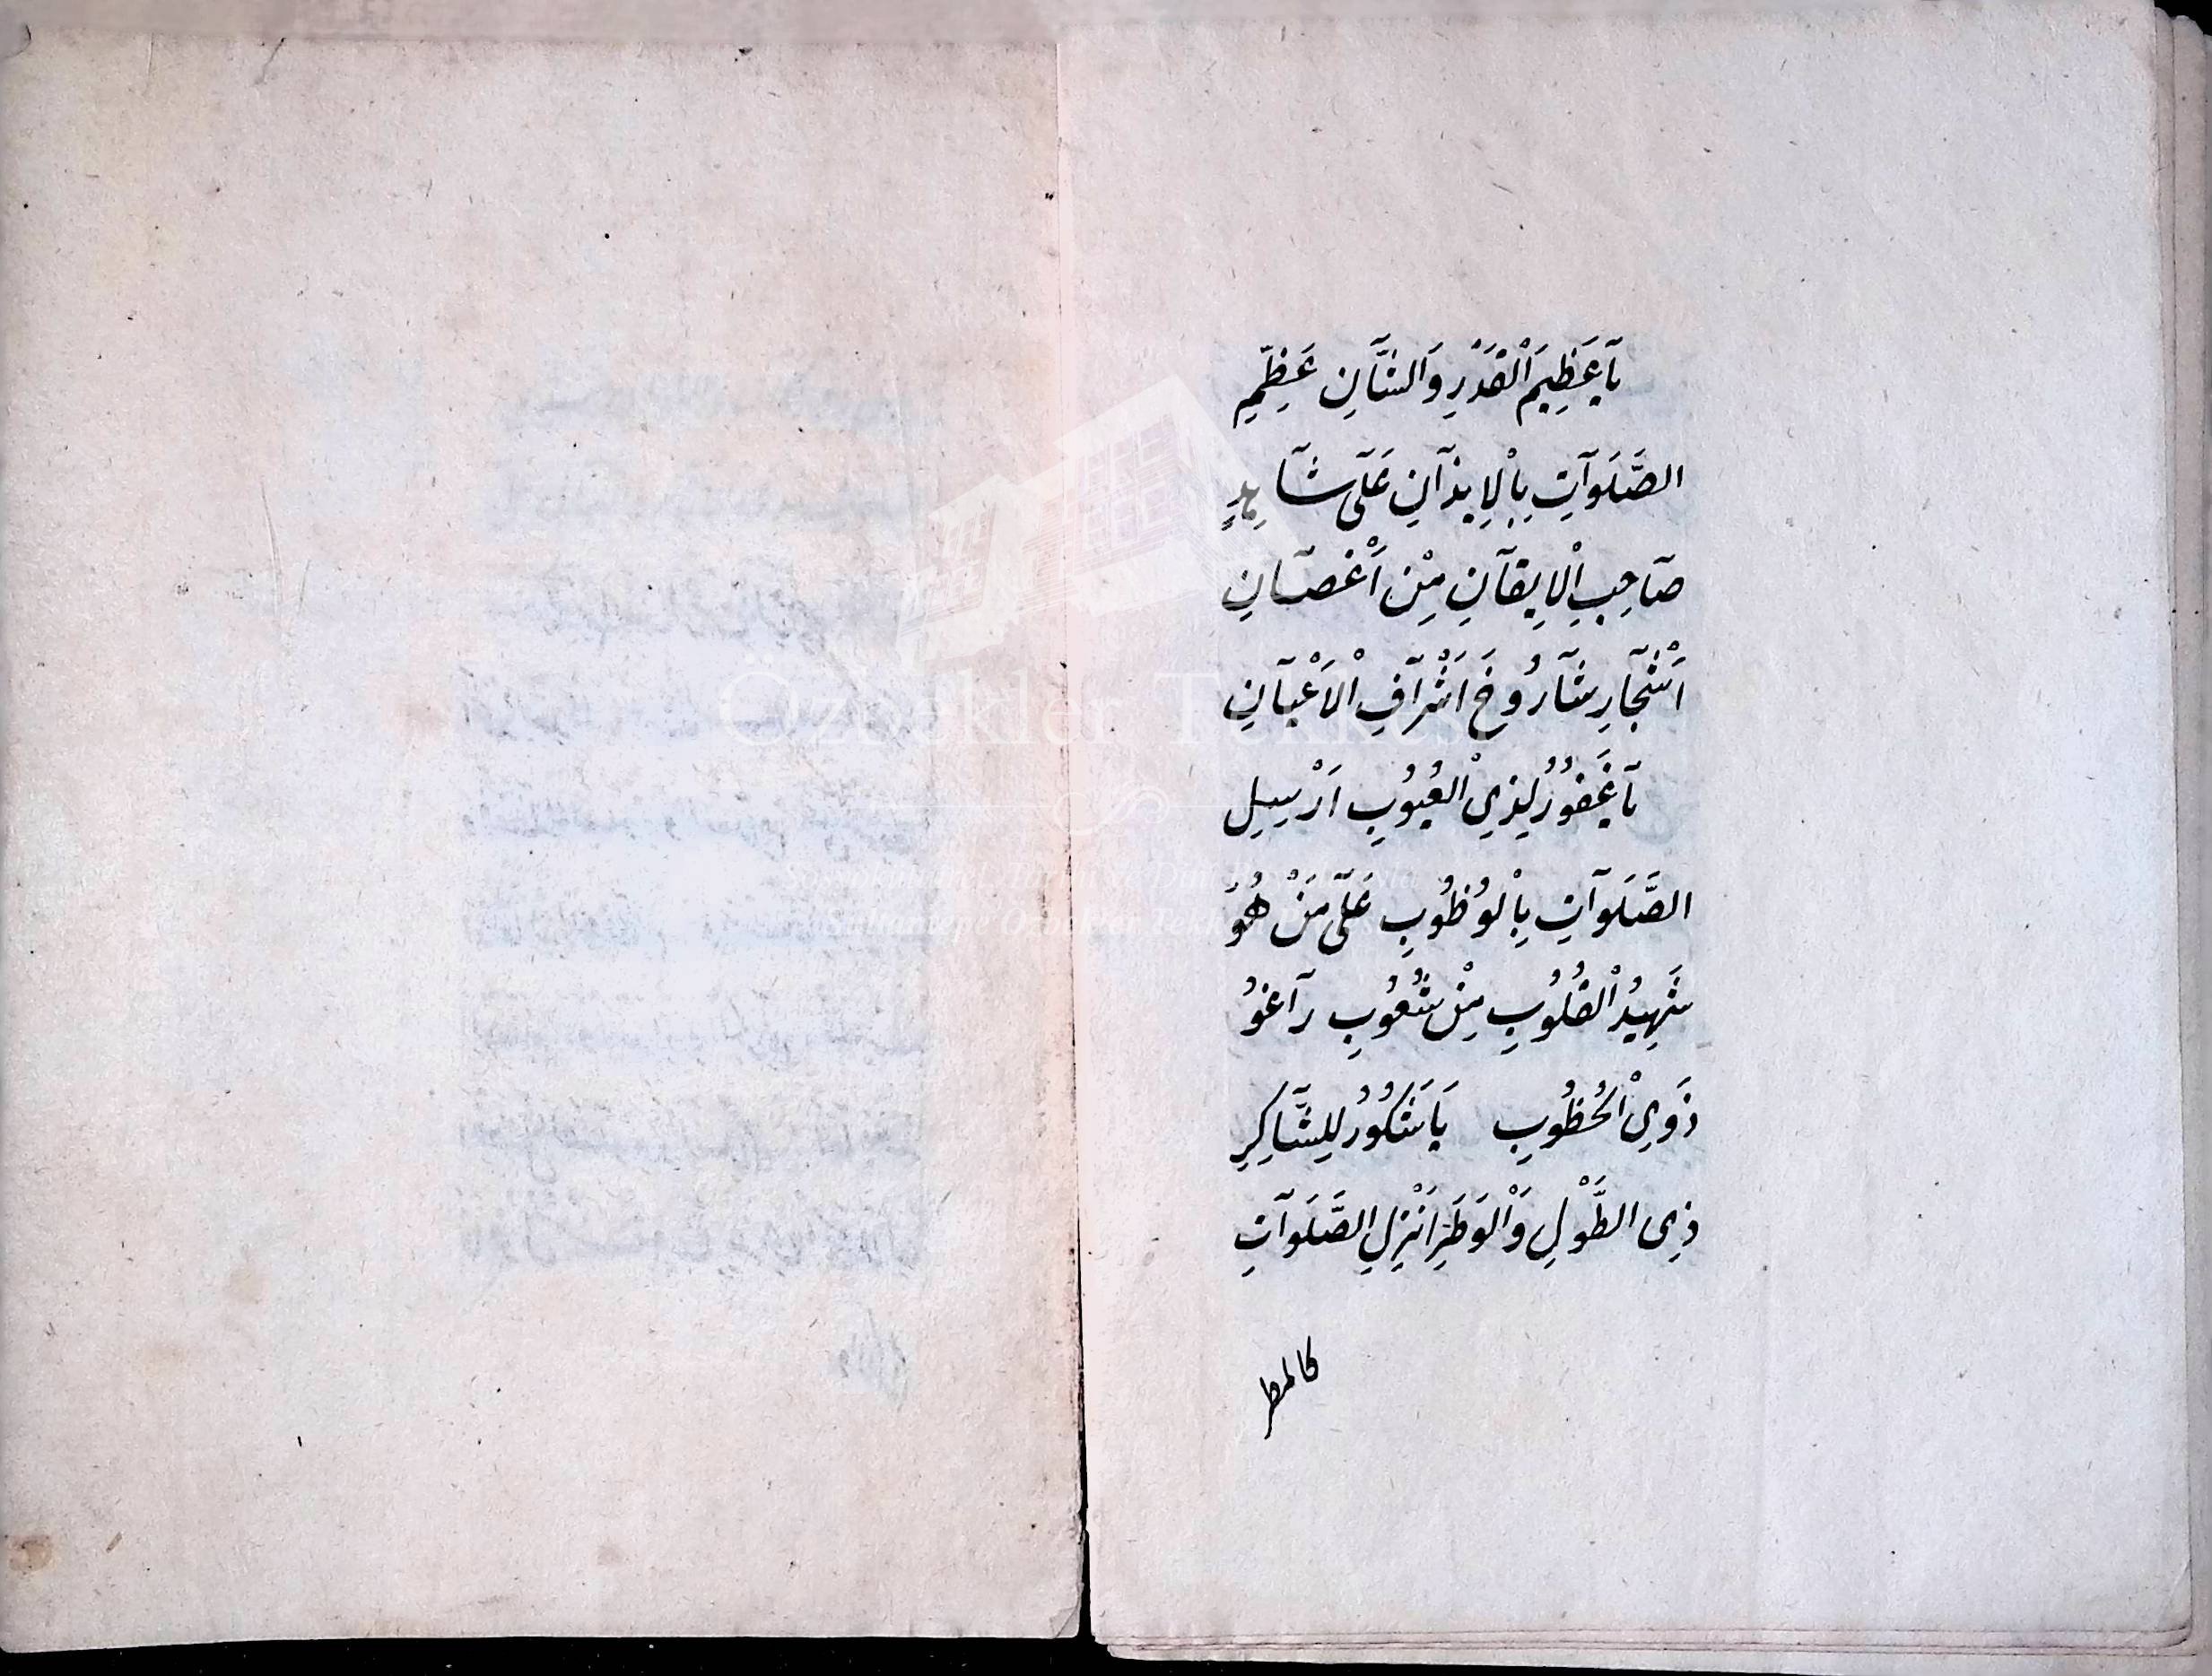 يَا عَظِيمَ الْقَدْرِ وَالشَّانِ عَظِّمِ
الصَّلَوَاتِ بِالْاِيذَانِ عَلَى شَاهِدٍ
صَاحِبِ الْاِيقَانِ مِنْ اَغْصَانِ
اَشْجَارِ شَارُوخَ اَشْرَافِ الْاَعْيَانِ
يَا غَفُورُ لِذِي الْعُيُوبِ اَرْسِلِ
الصَّلَوَاتِ بِالْوُظُوبِ عَلَى مَنْ هُوَ
شَهِيدُ الْقُلُوبِ مِنْ شُعُوبِ رَاغُو
ذَوِي الْحُظُوبِ يَا شَكُورُ لِلشَّاكِرِ
ذِي الطَّوْلِ وَالْوَطَرِ اَنْزِلِ الصَّلَوَاتِ
كالمطر
Özbekler Tekkesi